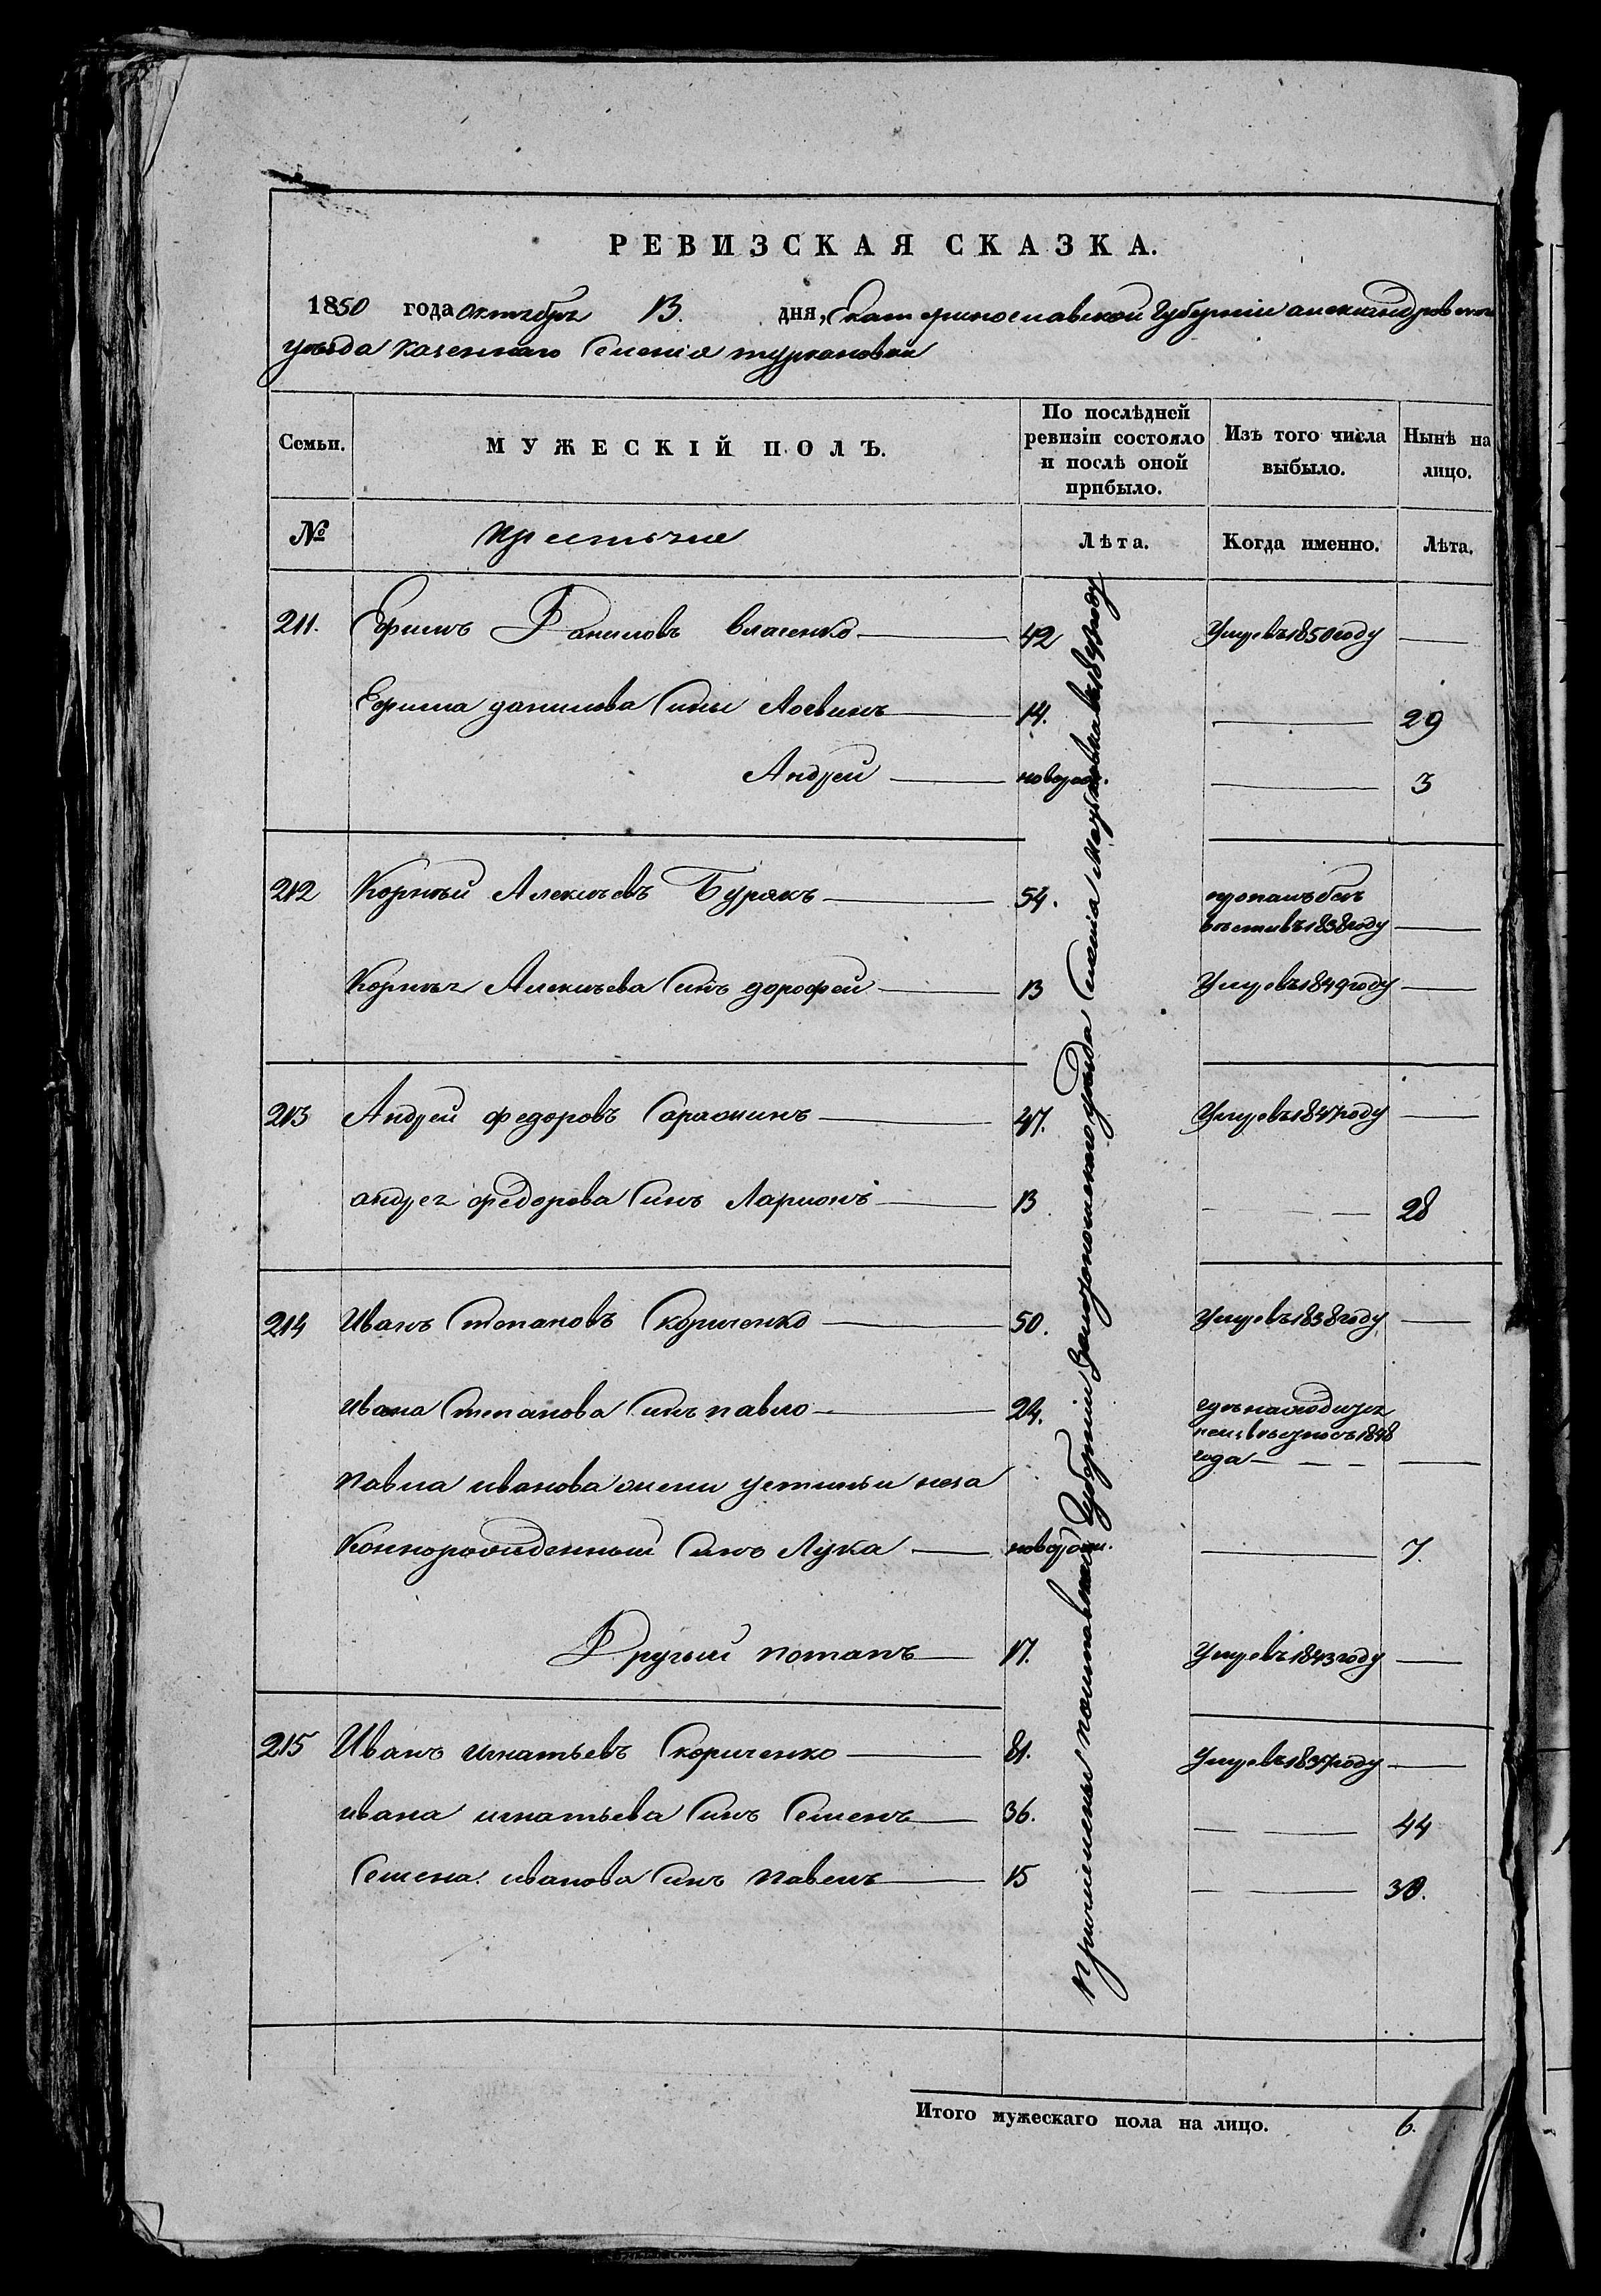 РЕВИЗСКАЯ СКАЗКА.
1850 года октября 13. дня, Екатеринославской Губернии александровского
уезда казенного Селения туркановки
Семьи. МУЖЕСКІЙ ПОЛЪ. По послѣдней ревизіи состояло и послѣ оной прибыло. Изъ того числа выбыло. Нынѣ на лицо.
№ крестьяне Лѣта. Когда именно. Лѣта.
211. Ефимъ Даниловъ власенко 42 Умре въ 1850 году
Ефима данилова Сины Логвинъ 14. 29
Андрей новорож. 3
212 Корнѣй Алексѣевъ Бурякъ 54. пропалъ безъ
вѣсти въ 1838 году
Корнѣя Алексѣева Синъ дорофей 13 Умре въ 1849 году
213 Андрей федоровъ Саражинъ 47. Умре въ 1847 году
андрея федорова Синъ Ларионъ 13 28
214 Иванъ Степановъ Скориченко 50. Умре въ 1838 году
ивана Степанова Синъ павло 24. где находится
неизвѣстно съ 1848
года
павла иванова жени устиньи неза
коннорожденный Синъ Лука новорож. 7.
Другий потапъ 17. Умре въ 1843 году
215 Иванъ игнатьевъ Скориченко 81. Умре въ 1837 году
ивана игнатьева Синъ Семенъ 36. 44
Семена иванова Синъ павелъ 15 30.
причислены полтавской Губернии Золотоношского уезда Селения в 1843 году
Итого мужескаго пола на лицо. 6.